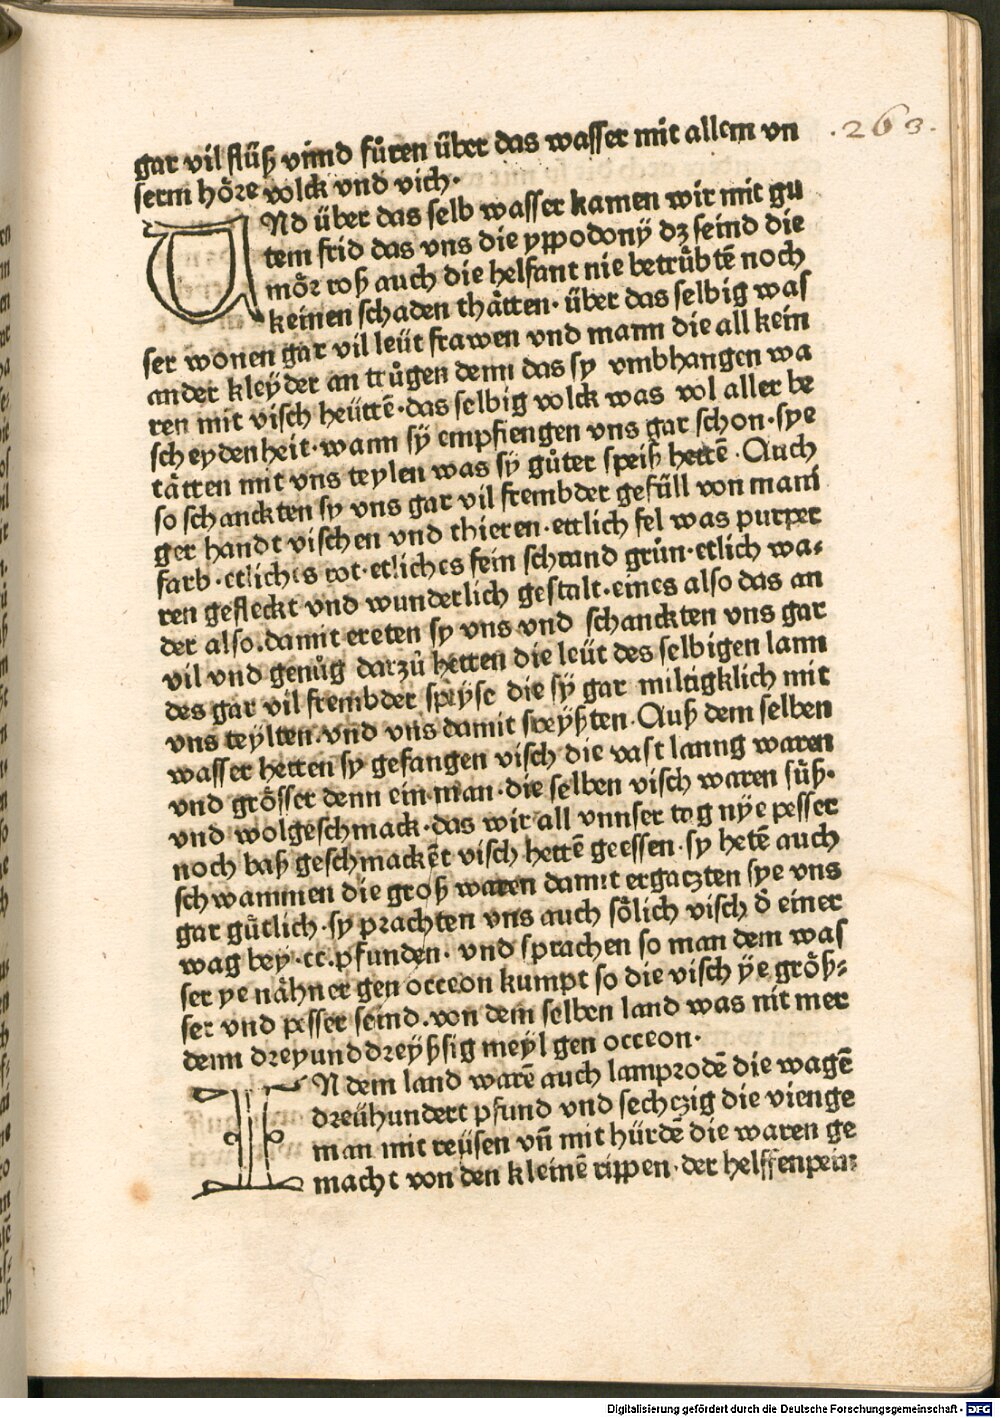 .263.
gar vil flüß vnnd fůren über das wasser mit allem vn
serm höre volck vnd vich·
UNd über das selb wasser kamen wir mit gu
tem frid das vns die yppodonÿ dz seind die
mör roß auch die helfant nie betrůbtē noch
keinen schaden thåtten· über das selbig was
ser wonen gar vil leüt frawen vnd mann die all kein
ander kleyder an trůgen denn das sy vmbhangen wa
ren mit visch heüttē·das selbig volck was vol aller be
scheydenheit·wann sÿ empfiengen vns gar schon·sye
tåtten mit vns teylen was sÿ gůter speiß hettē·Auch
so schanckten sy vns gar vil frembder gefüll von mani
ger handt vischen vnd thieren·ettlich fel was purper
farb·etliches rot·etliches fein schand grůn·etlich wa⸗
ren gefleckt vnd wunderlich gestalt·eines also das an
der also.damit ereten sy vns vnd schanckten vns gar
vil vnd genůg darzů hetten die leüt des selbigen lann
des gar vil frembder speÿse die sÿ gar miltigklich mit
vns teylten.vnd vns damit speÿßten·Auß dem selben
wasser hetten sy gefangen visch die vast lanng waren
vnd grösser denn ein man·die selben visch waren süß·
vnd wolgeschmack·das wir all vnnser tag nÿe pesser
noch baß geschmackēt visch hettē geessen·sy hetē auch
schwammen die groß waren damit ergaczten sye vns
gar gůtlich·sy prachten vns auch sölich visch ð einer
wag bey·cc.pfunden· vnd sprachen so man dem was
ser ye nåhner gen occeon kumpt so die visch ÿe größ⸗
ser vnd pesser seind.von dem selben land was nit mer
denn dreyunddreyßsig meyl gen occeon·
IN dem land warē auch lamprodē die wagē
dreühundert pfund vnd sechczig die vienge
man mit reüsen vn̄ mit hürdē die waren ge
macht von den kleinē rippen·der helffenpein:
Digitalisierung gefördert durch die Deutsche Forschungsgemeinschaft - DFG